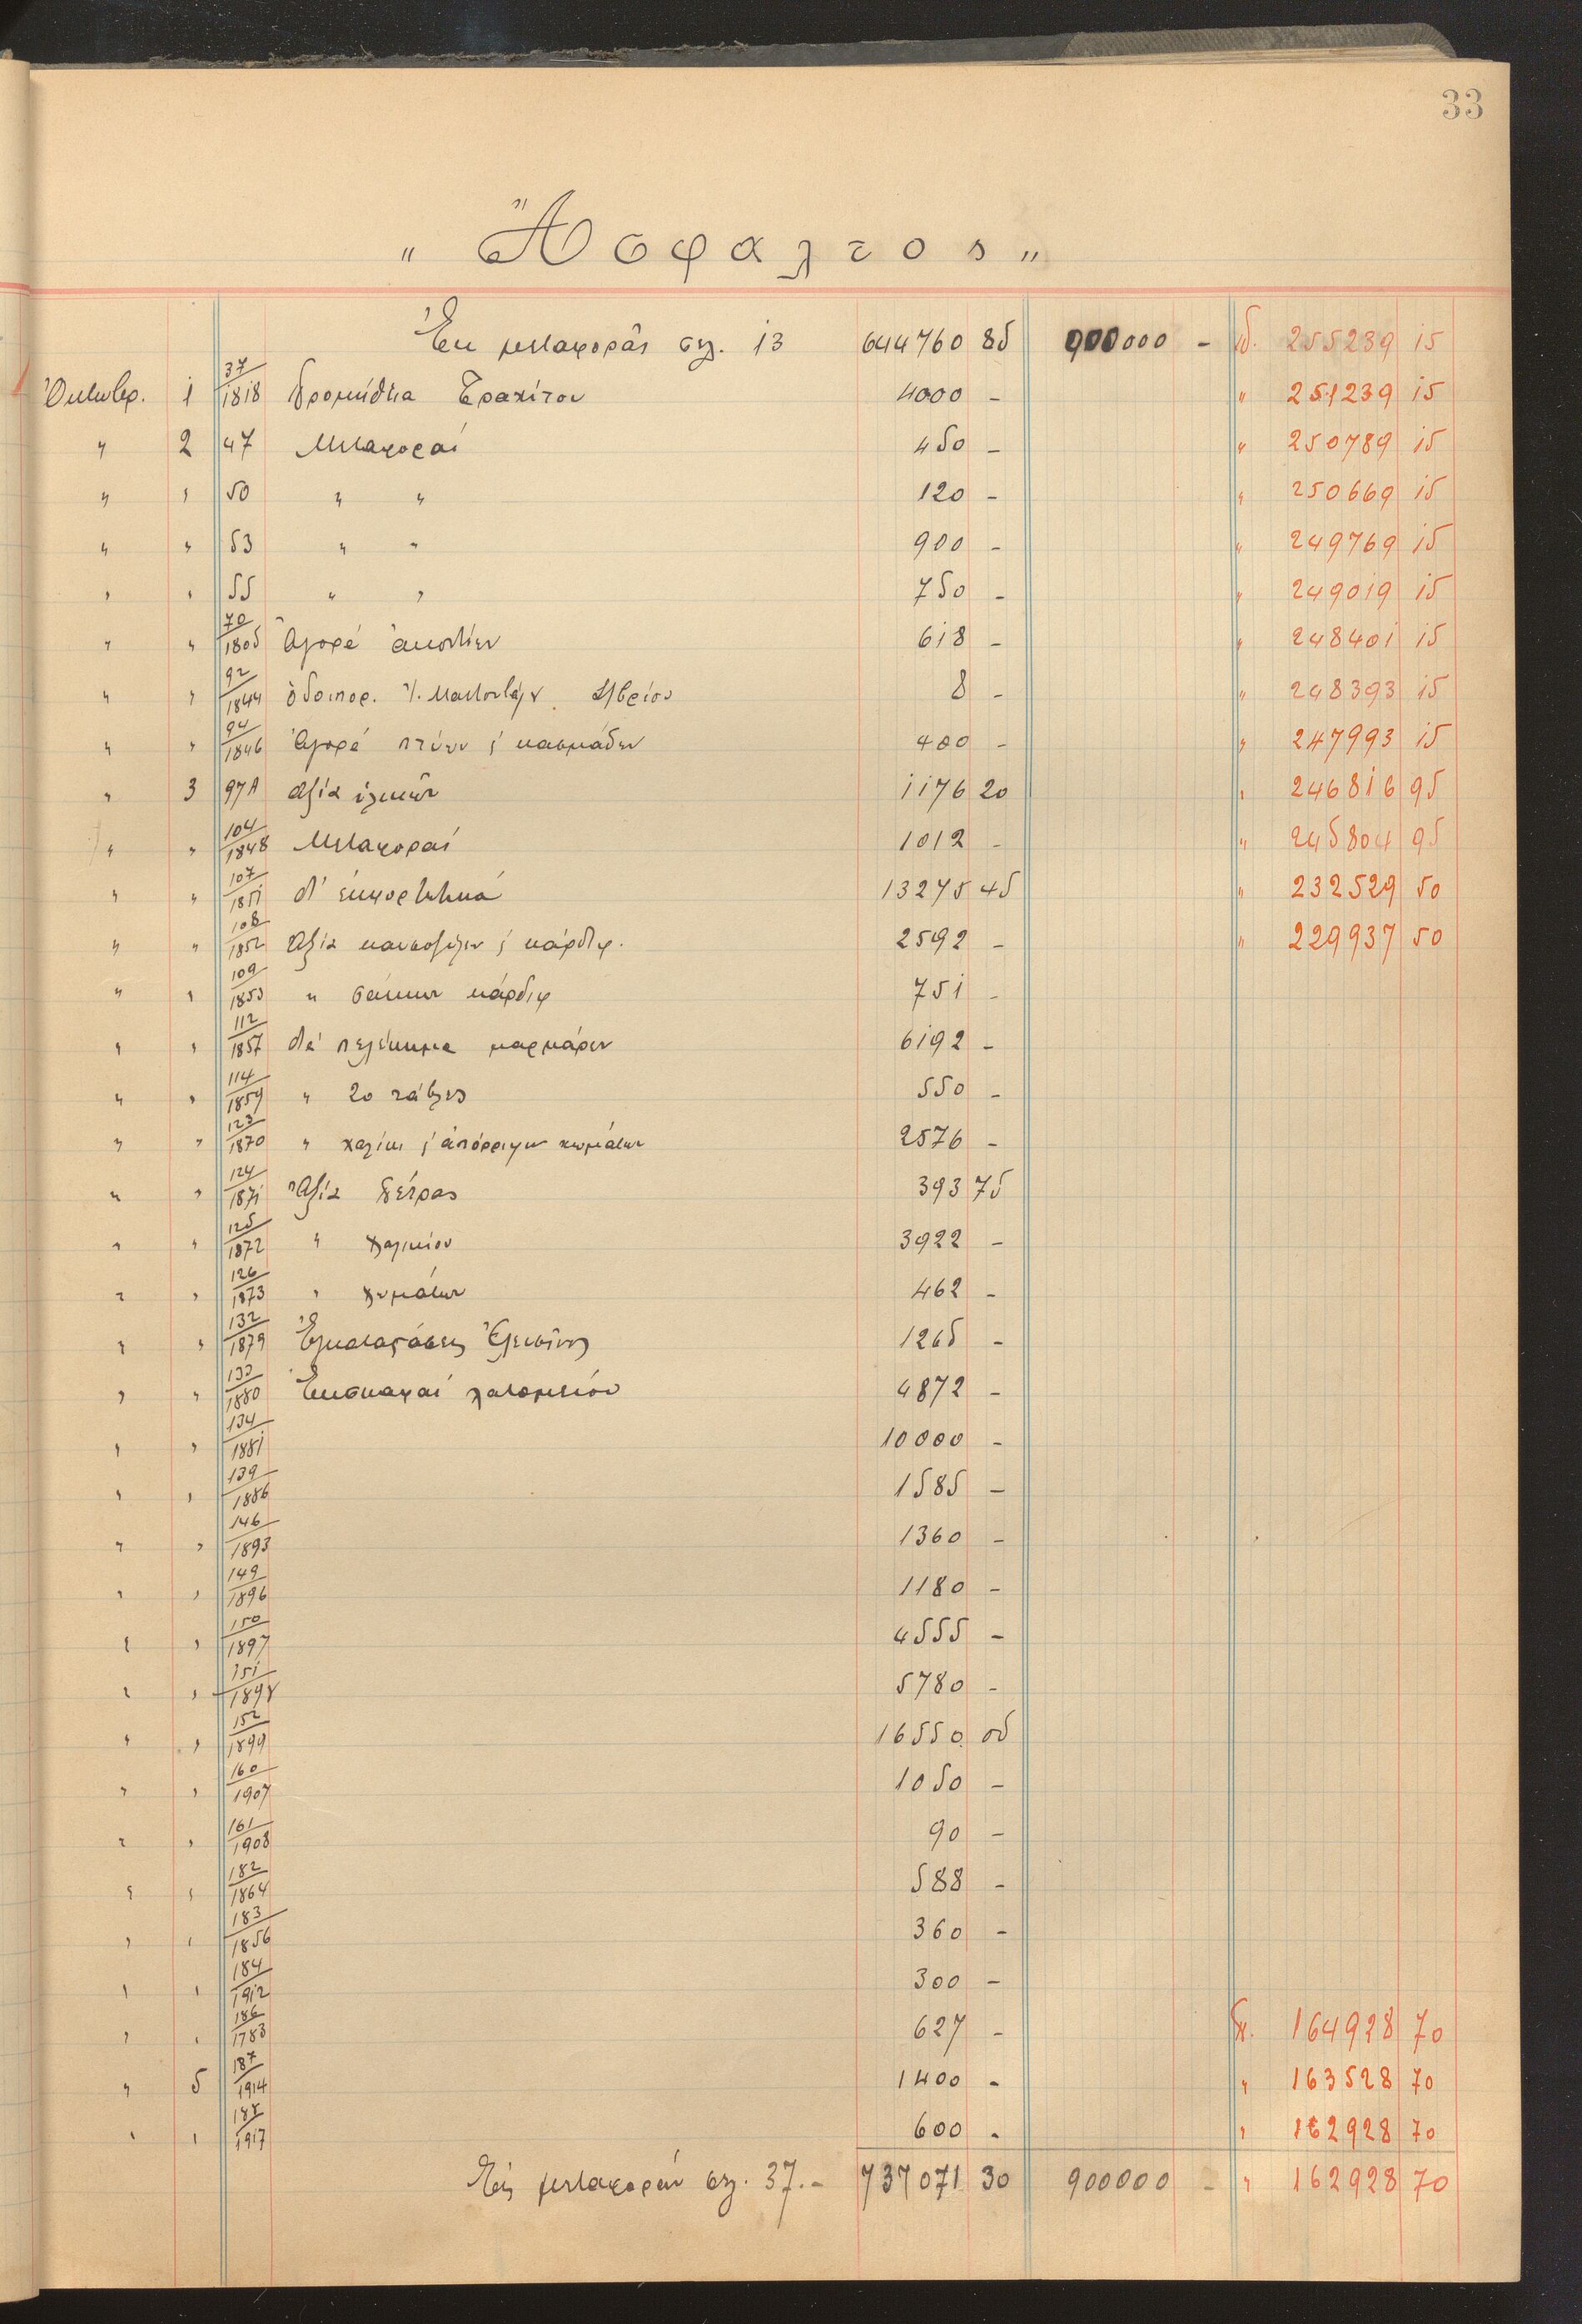 33
" Ἄσφαλτος "
Ἐκ μεταφορᾶς σελ. 13 644760 85 900000 - δ. 255239 15
Ὀκτωβρ. 1 37/1818 Προμήθεια Τραχίτου 4000 - " 251239 15
" 2 47 Μεταφοραί 450 - " 250789 15
" " 50 " " 120 - " 250669 15
" " 53 " " 900 - " 249769 15
" " 55 " " 750 - " 249019 15
" " 70/1805 Ἀγορά 618 - " 248401 15
" " 92/1844 ὁδοιπορ. 8 - " 248393 15
" " 94/1846 Ἀγορά πτύων & κασμάδων 400 - " 247993 15
" 3 97Α Ἀξία ὑλικῶν 1176 20 " 246816 95
" " 104/1848 Μεταφοραί 1012 - " 245804 95
" " 107/1851 δι' ἐκφορτωτικά 13275 45 " 232529 50
" " 108/1852 Ἀξία καυσοξύλων & κάρδιφ. 2592 - " 229937 50
" " 109/1853 " σάκκων κάρδιφ 751 -
" " 112/1857 διά πελέκημα μαρμάρων 6192 -
" " 114/1859 " 20 τάβλες 550 -
" " 123/1870 " χαλίκι & ἀπόρριψιν χωμάτων 2576 -
" " 124/1871 Ἀξία πέτρας 393 75
" " 125/1872 " χαλικίου 3922 -
" " 126/1873 " χωμάτων 462 -
" " 132/1879 Ἐγκαταστάσεις Ἐλευσῖνος 1265 -
" " 133/1880 Ἐκσκαφαί λατομείου 4872 -
" " 134/1881 10000 -
" " 139/1886 1585 -
" " 146/1893 1360 -
" " 149/1896 1180 -
" " 150/1897 4555 -
" " 151/1898 5780 -
" " 152/1899 16550 05
" " 160/1907 1050 -
" " 161/1908 90 -
" " 182/1864 588 -
" " 183/1856 360 -
" " 184/1912 300 -
" " 186/1783 627 - δ. 164928 70
" 5 187/1914 1400 - " 163528 70
" " 188/1917 600 - " 162928 70
Εἰς μεταφοράν σελ. 37.- 737071 30 900000 - " 162928 70